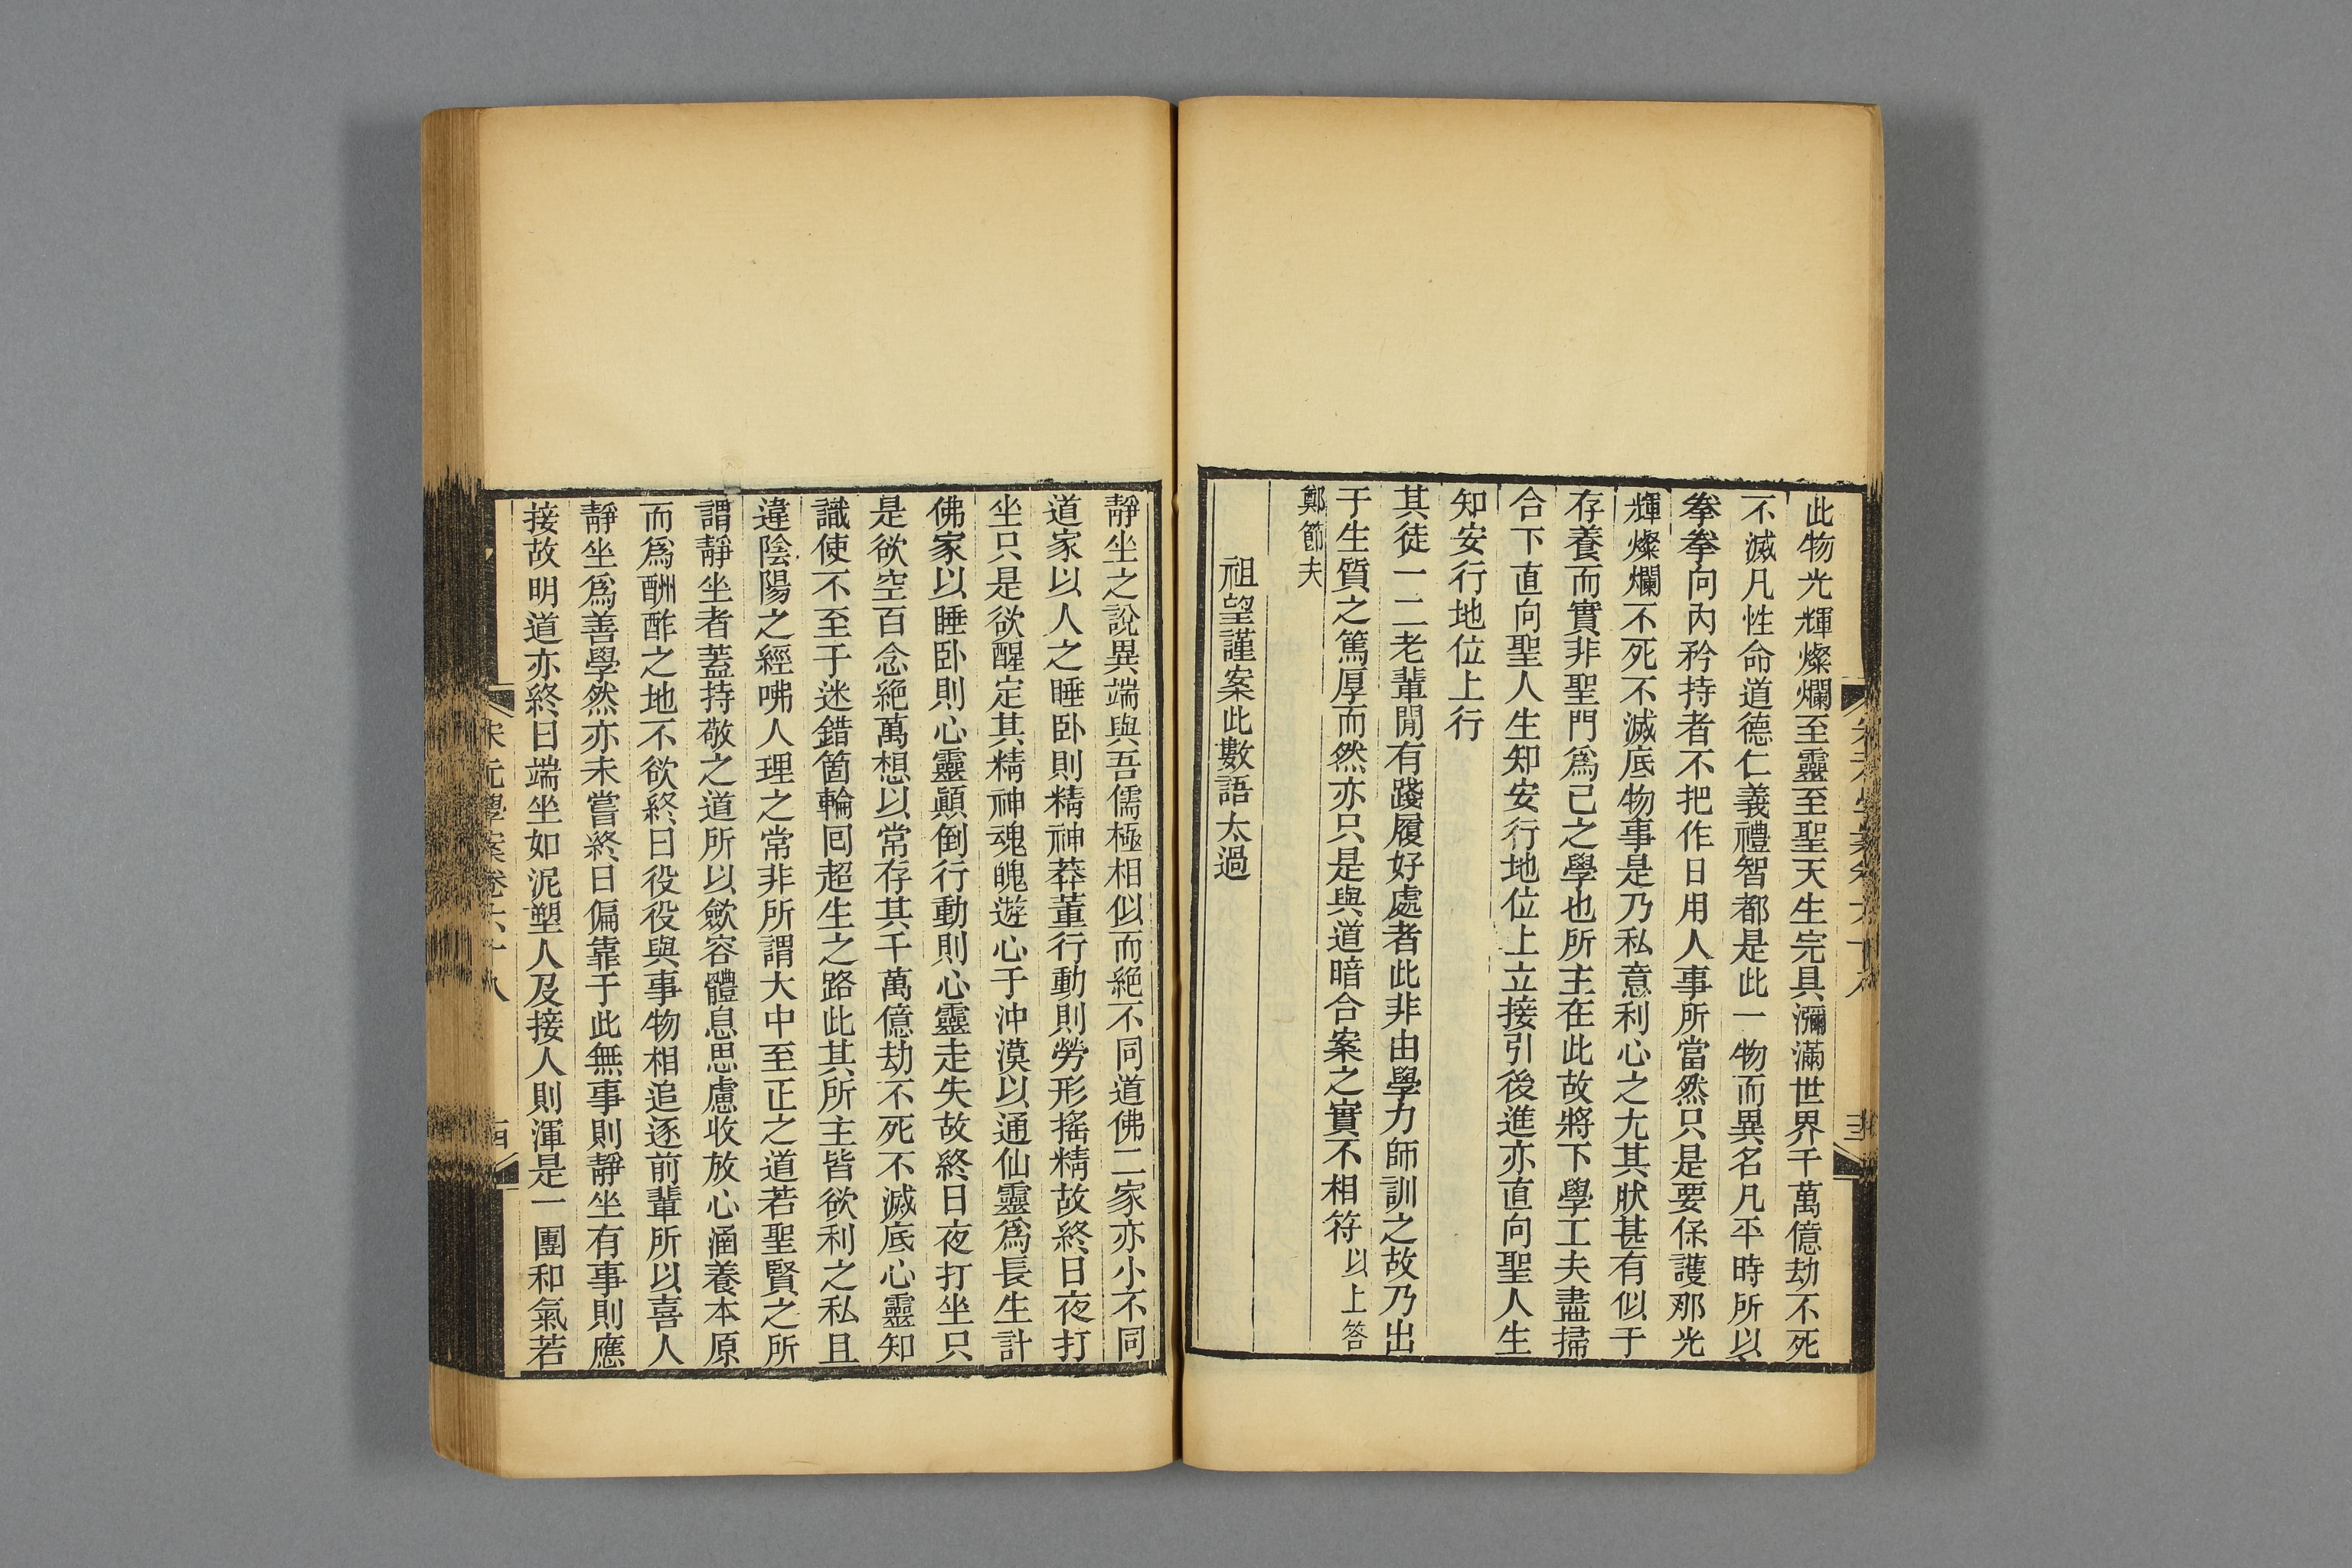 此物光輝燦爛至靈至聖天生完具瀰滿世界千萬億劫不死
不滅凡性命道德仁義禮智都是此一物而異名凡平時所以
拳拳向內矜持者不把作日用人事所當然只是要保護那光
輝燦爛不死不滅底物事是乃私意利心之尤其狀甚有似于
存養而實非聖門爲己之學也所主在此故將下學工夫盡掃
合下直向聖人生知安行地位上立接引後進亦直向聖人生
知安行地位上行
其徒一二老輩閒有踐履好處者此非由學力師訓之故乃出
于生質之篤厚而然亦只是與道暗合案之實不相符以上答
鄭節夫
祖望謹案此數語太過
靜坐之說異端與吾儒極相似而絕不同道佛二家亦小不同
道家以人之睡卧則精神莽董行動則勞形搖精故終日夜打
坐只是欲醒定其精神魂魄遊心于沖漠以通仙靈爲長生計
佛家以睡卧則心靈顚倒行動則心靈走失故終日夜打坐只
是欲空百念絕萬想以常存其千萬億劫不死不滅底心靈知
識使不至于迷錯箇輪回超生之路此其所主皆欲利之私且
違陰陽之經咈人理之常非所謂大中至正之道若聖賢之所
謂靜坐者蓋持敬之道所以歛容體息思慮收放心涵養本原
而爲酬酢之地不欲終日役役與事物相追逐前輩所以喜人
靜坐爲善學然亦未嘗終日偏靠于此無事則靜坐有事則應
接故明道亦終日端坐如泥塑人及接人則渾是一團和氣若
宋元學案卷六十八